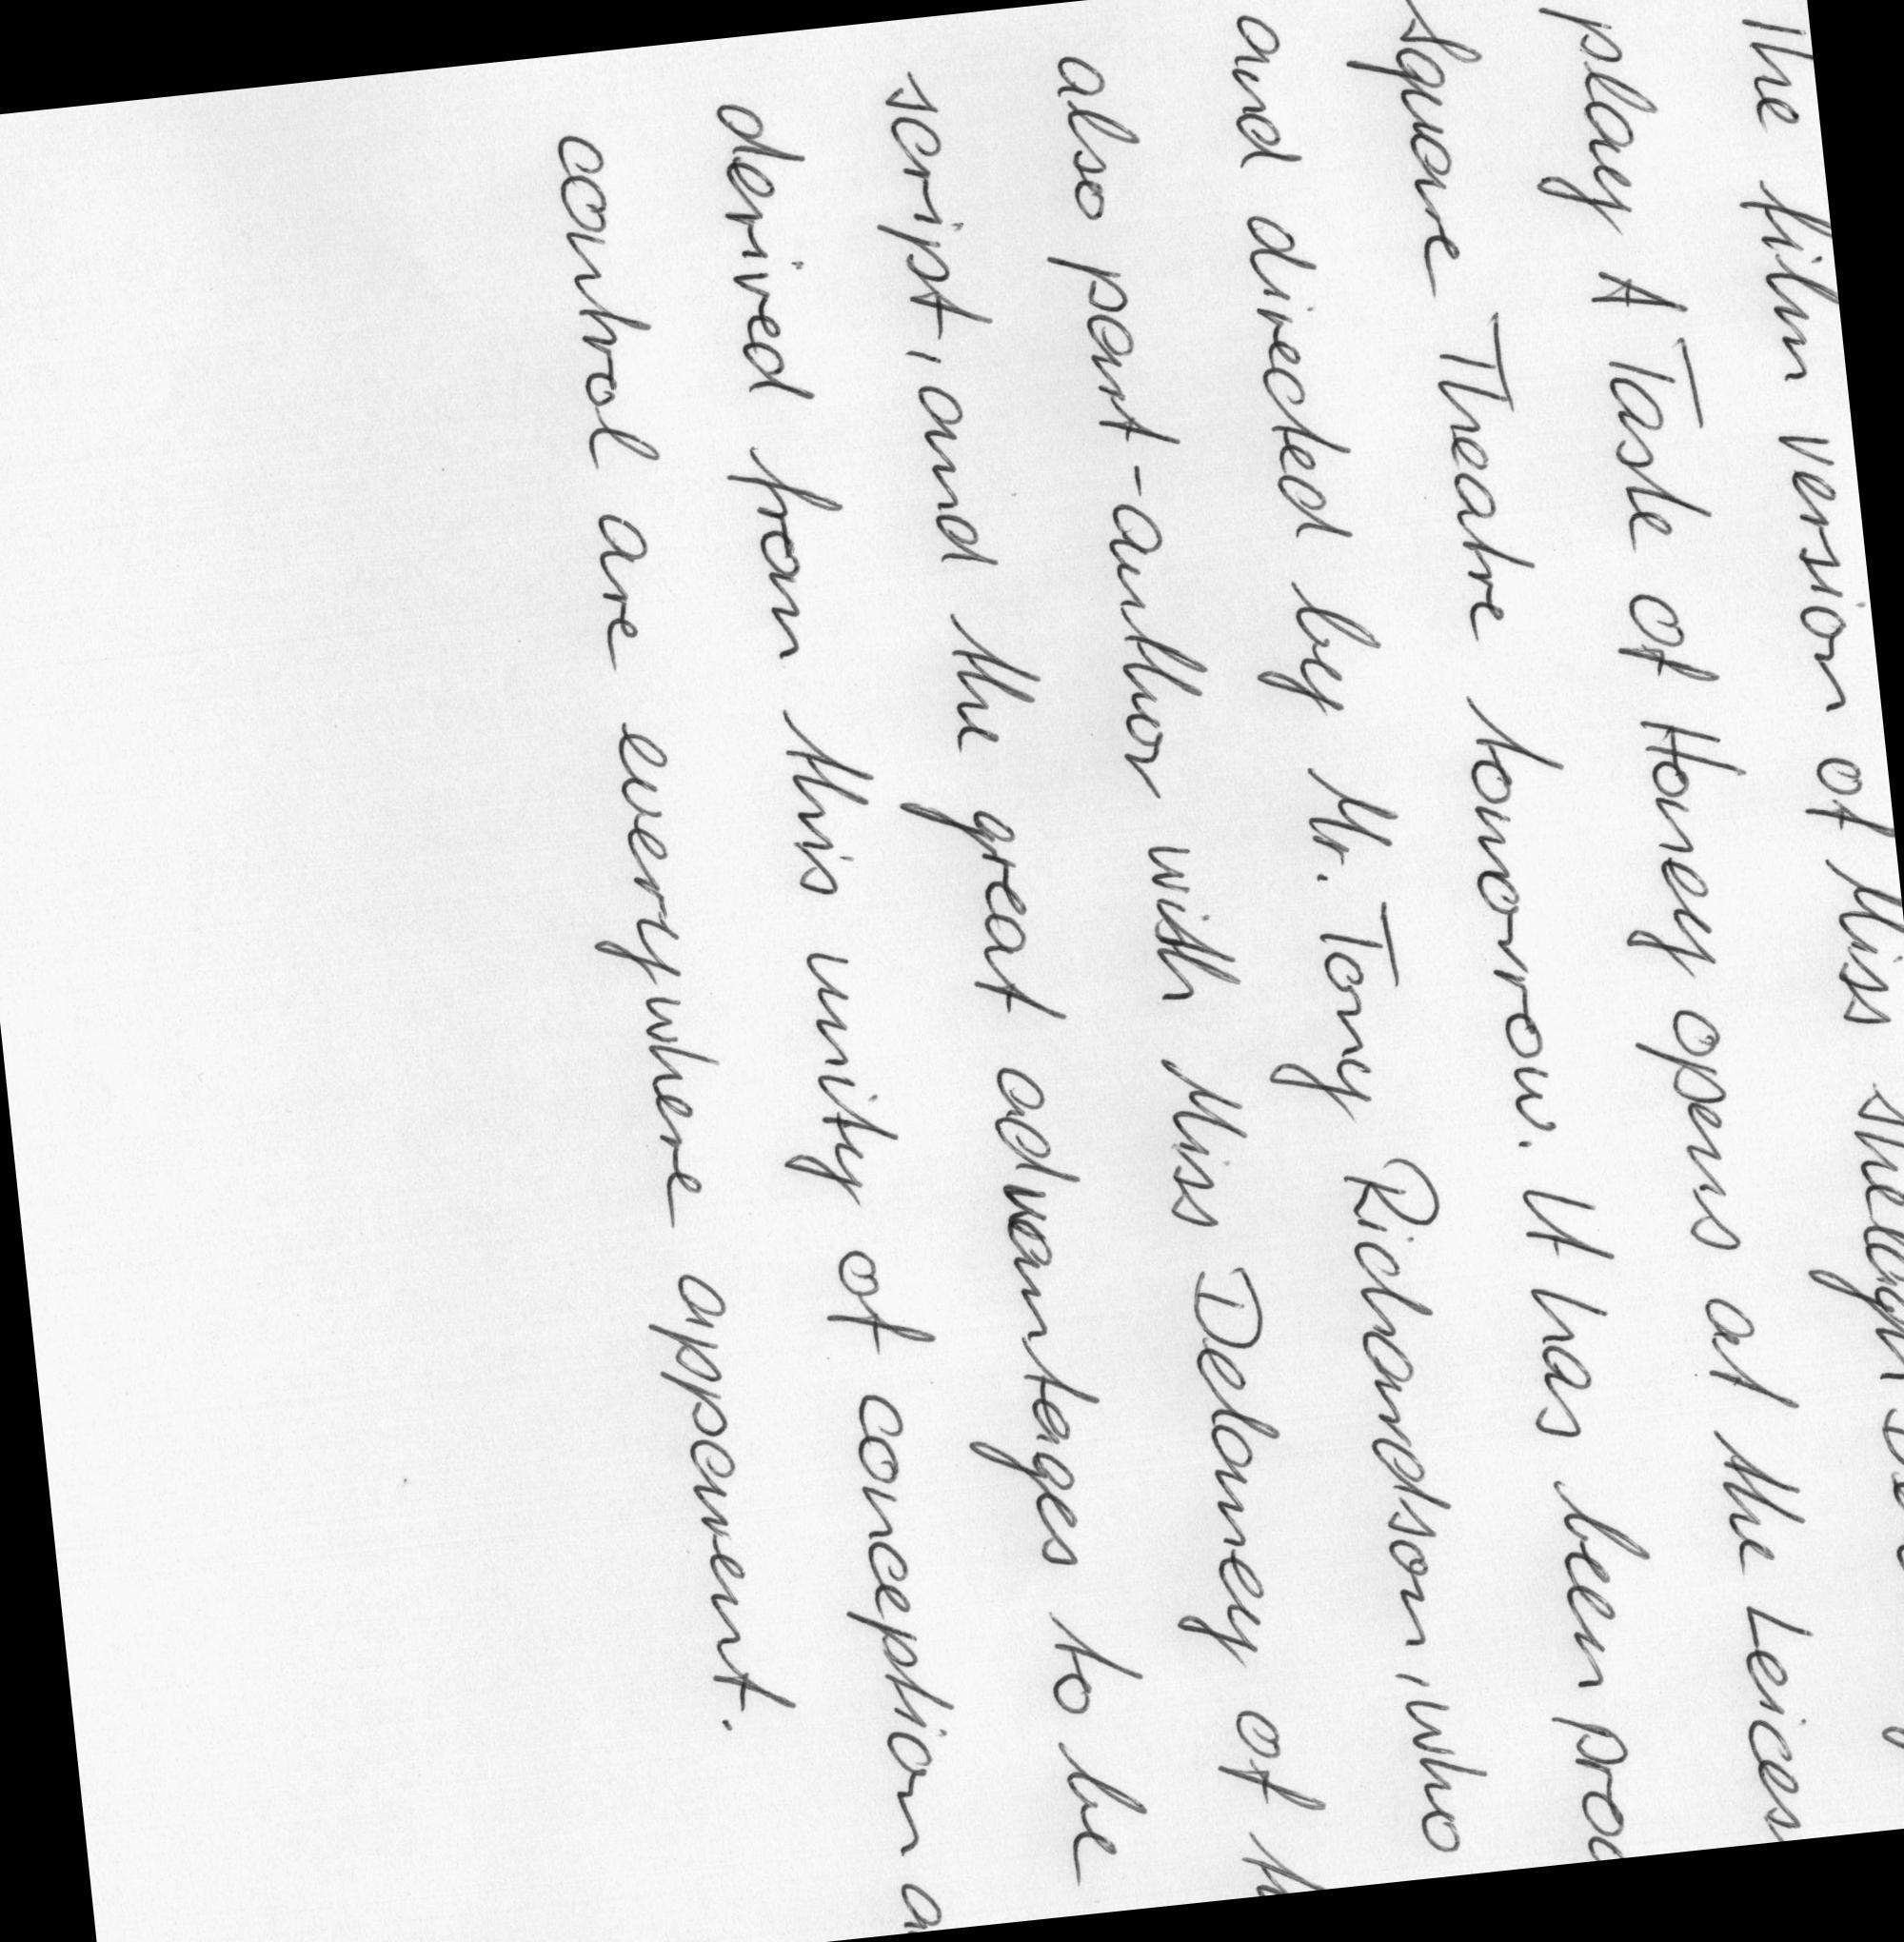 The film version of Miss Shelagh
play A Taste of Honey opens at the
Square Theatre tomorrow. It has been
and directed by Mr. Tony Richardson, who
also part-author with Miss Delaney of
script, and the great advantages to be
derived from this unity of conception
control are everywhere apparent.